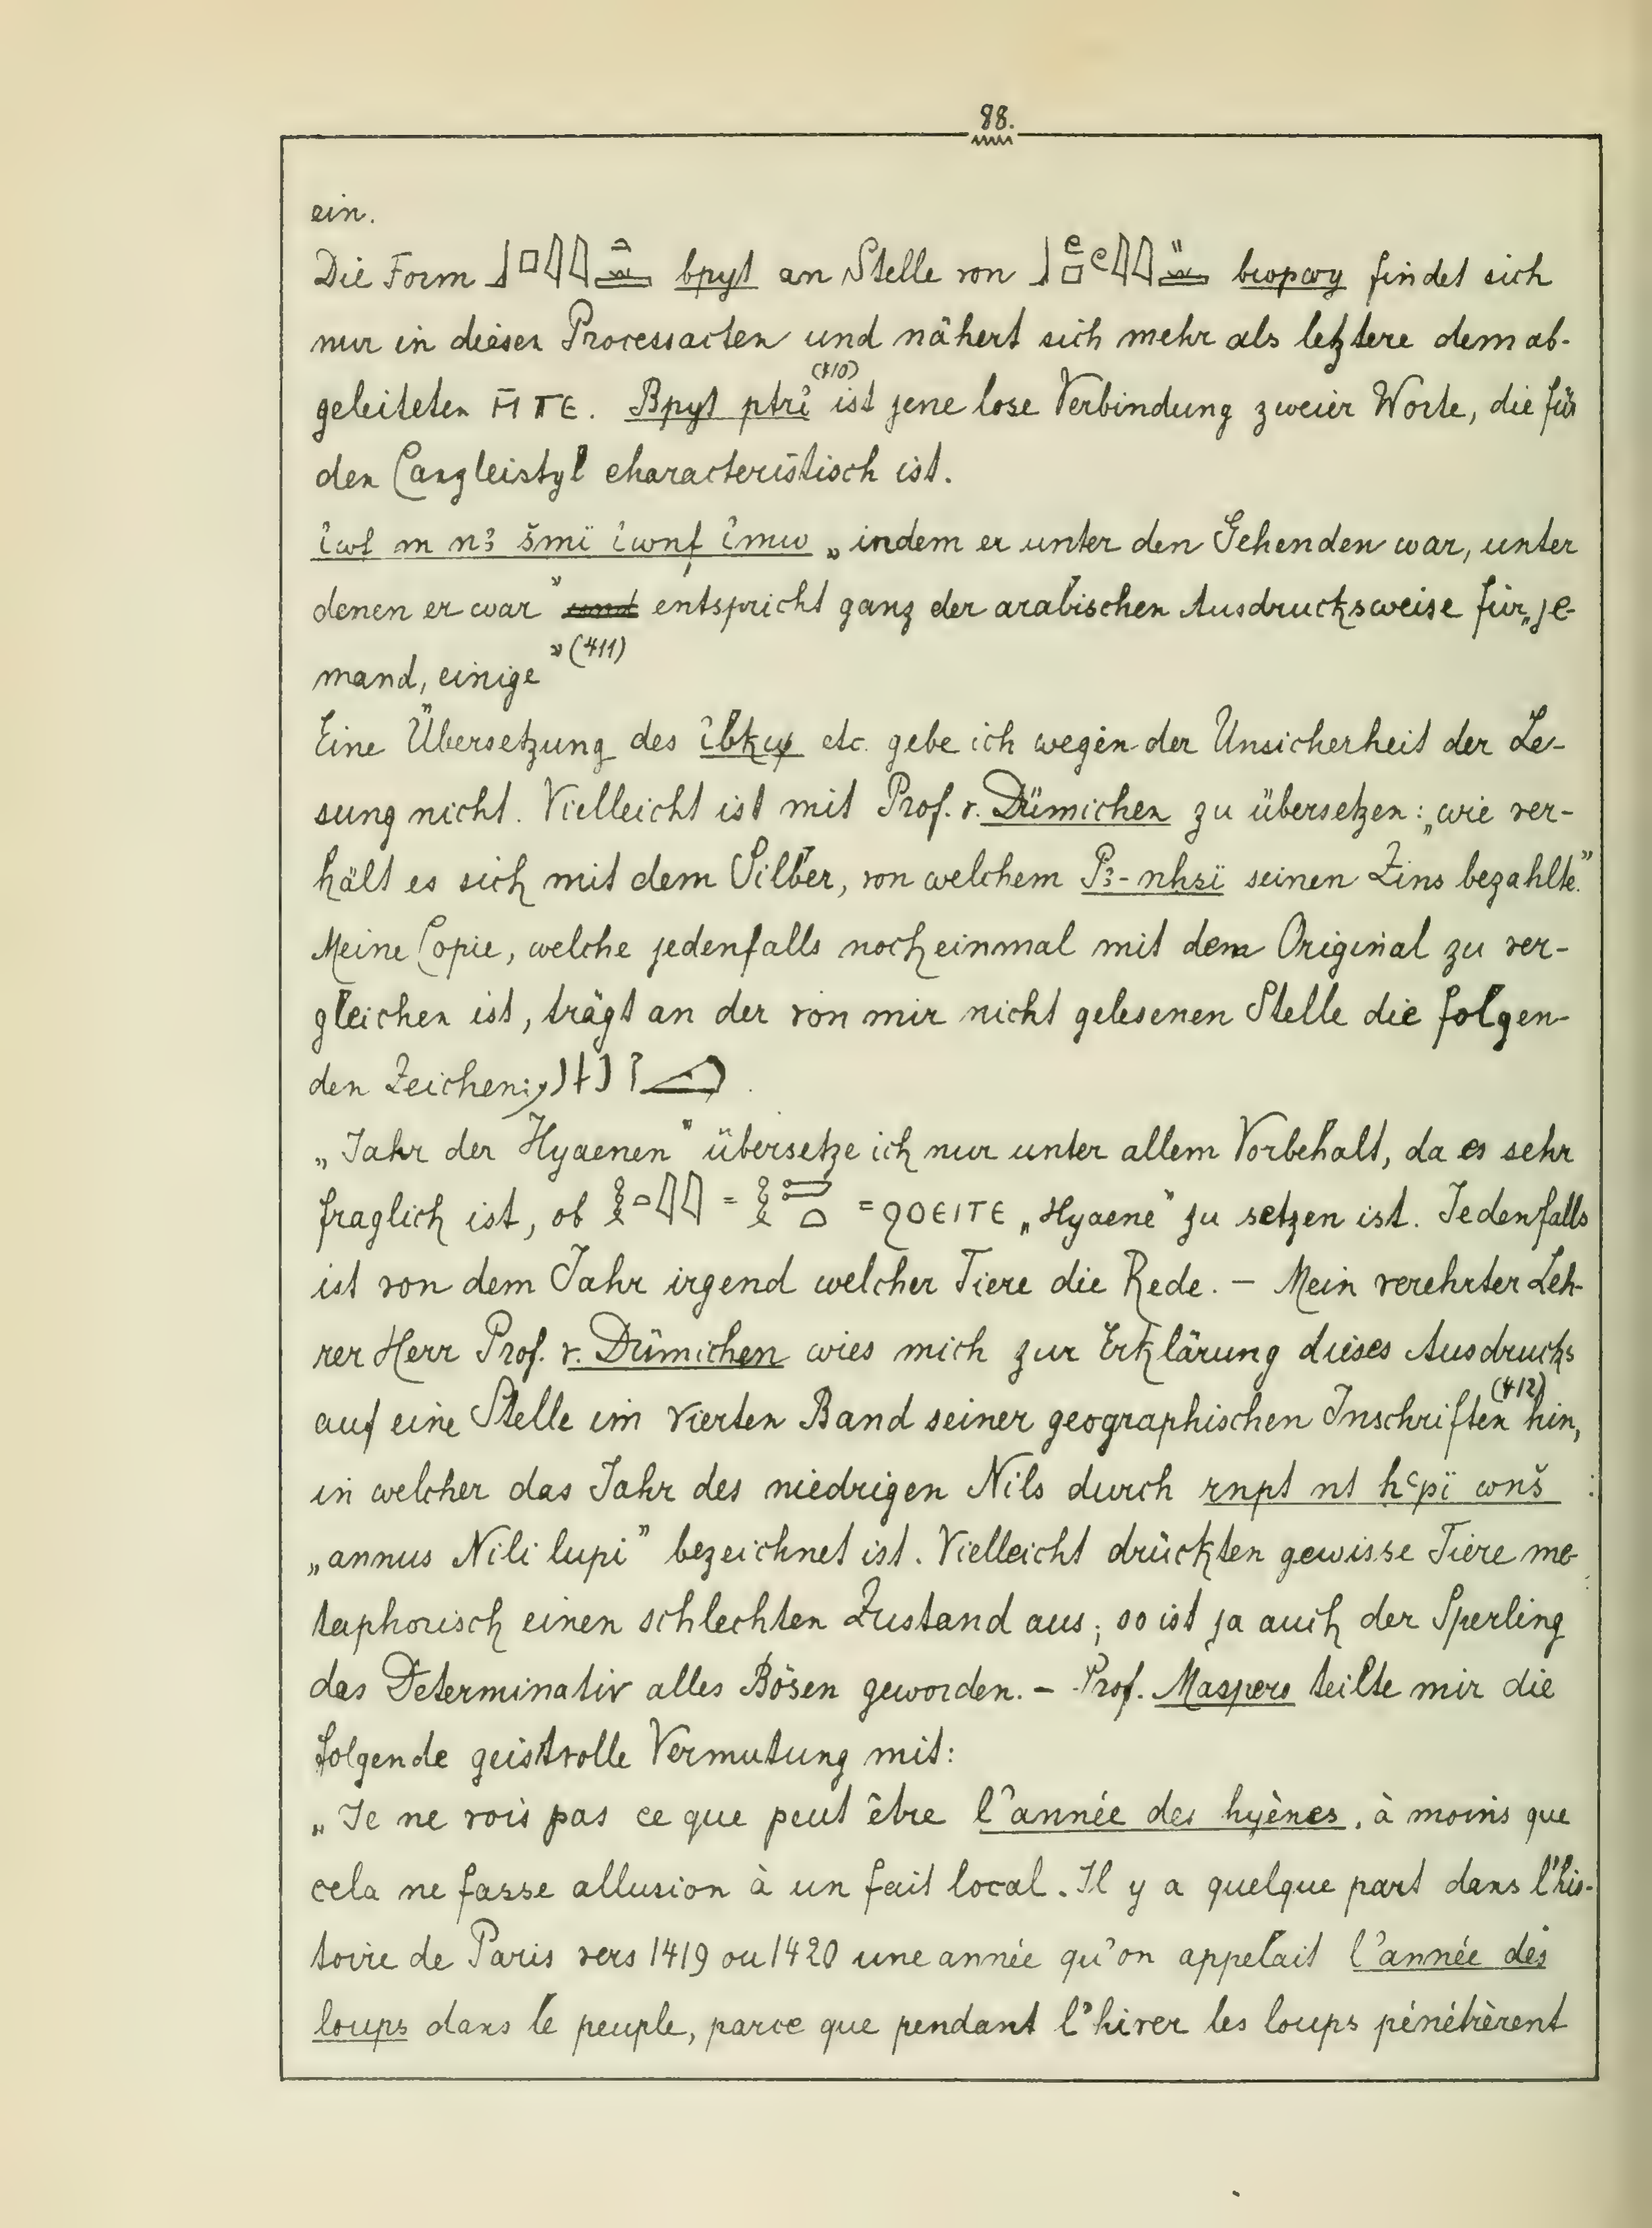 88.
ein.
Die Form bpyt an Stelle von findet sich
nur in diesen Processacten und nähert sich mehr als letztere dem ab-
geleiteten ⲠⲈ. Bpyt ptrî (410) ist jene lose Verbindung zweier Worte, die für
den Canzleistyl characteristisch ist.
îwf m n3 šmï îwnf îmw „indem er unter den Gehenden war, unter
denen er war” entspricht ganz der arabischen Ausdrucksweise für „je-
mand, einige” (411)
Eine Übersetzung des etc. gebe ich wegen der Unsicherheit der Le-
sung nicht. Vielleicht ist mit Prof. v. Dümichen zu übersetzen: „wie ver-
hält es sich mit dem Silber, von welchem P3-nhsï seinen Zins bezahlte.”
Meine Copie, welche jedenfalls noch einmal mit dem Original zu ver-
gleichen ist, trägt an der von mir nicht gelesenen Stelle die folgen-
den Zeichen:
„Jahr der Hyaenen” übersetze ich nur unter allem Vorbehalt, da es sehr
fraglich ist, ob = = ϨΟΕΙΤΕ „Hyaene” zu setzen ist. Jedenfalls
ist von dem Jahr irgend welcher Tiere die Rede. – Mein verehrter Leh-
rer Herr Prof. v. Dümichen wies mich zur Erklärung dieses Ausdrucks
auf eine Stelle im vierten Band seiner geographischen Inschriften (412) hin,
in welcher das Jahr des niedrigen Nils durch rnpt nt hꜥpï wnš :
„annus Nili lupi” bezeichnet ist. Vielleicht drückten gewisse Tiere me-
taphorisch einen schlechten Zustand aus; so ist ja auch der Sperling
das Determinativ alles Bösen geworden. – Prof. Maspero teilte mir die
folgende geistvolle Vermutung mit:
„Je ne vois pas ce que peut être l'année des hyènes, à moins que
cela ne fasse allusion à un fait local. Il y a quelque part dans l'his-
toire de Paris vers 1419 ou 1420 une année qu'on appelait l'année des
loups dans le peuple, parce que pendant l'hiver les loups pénétrèrent